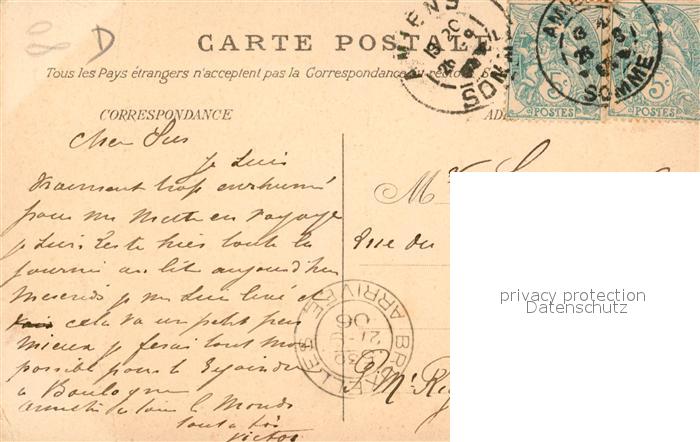 D
CARTE POSTALE
Tous les Pays étrangers n'acceptent pas la Correspondance au recto
CORRESPONDANCE
AMIENS
SOMME
AMIENS
SOMME
5c
POSTES
5c
POSTES
Cher
Je suis
vraiment trop enrhumé
pour me mettre en voyage
je suis resté hier toute la
journée au lit aujourd'hui
je me suis levé et
cela va un petit peu
mieux je ferai tout mon
possible pour te rejoindre
a Boulogne
le monde
Victor
M
Rue du
BRUXELLES
ARRIVÉE
privacy protection
Datenschutz